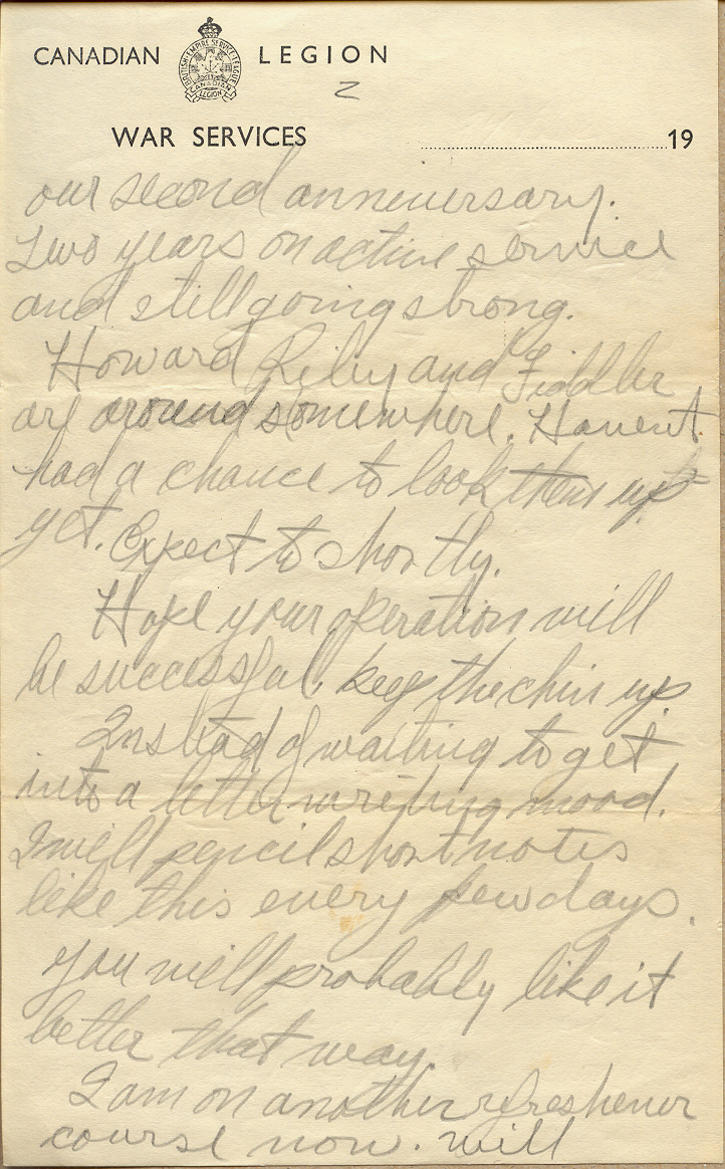 CANADIAN LEGION
BRITISH EMPIRE SERVICE LEAGUE
CANADIAN
LEGION
2
WAR SERVICES
19
our second anneversary.
Two years on active service
and still going strong.
Howard Riley and Fiddler
are around somewhere. Havent
had a chance to look them up
yet. Expect to shortly.
Hope your operation will
be successful, keep the chin up.
Instead of waiting to get
into a letter writing mood.
I will pencil short notes
like this every few days.
you will probably like it
better that way.
I am on another refreshener
course now. will